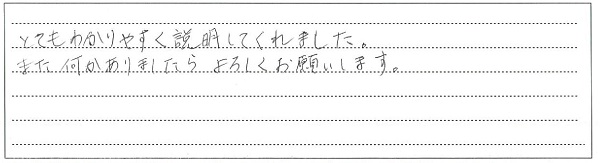 とてもわかりやすく説明してくれました。
また何かありましたらよろしくお願いします。